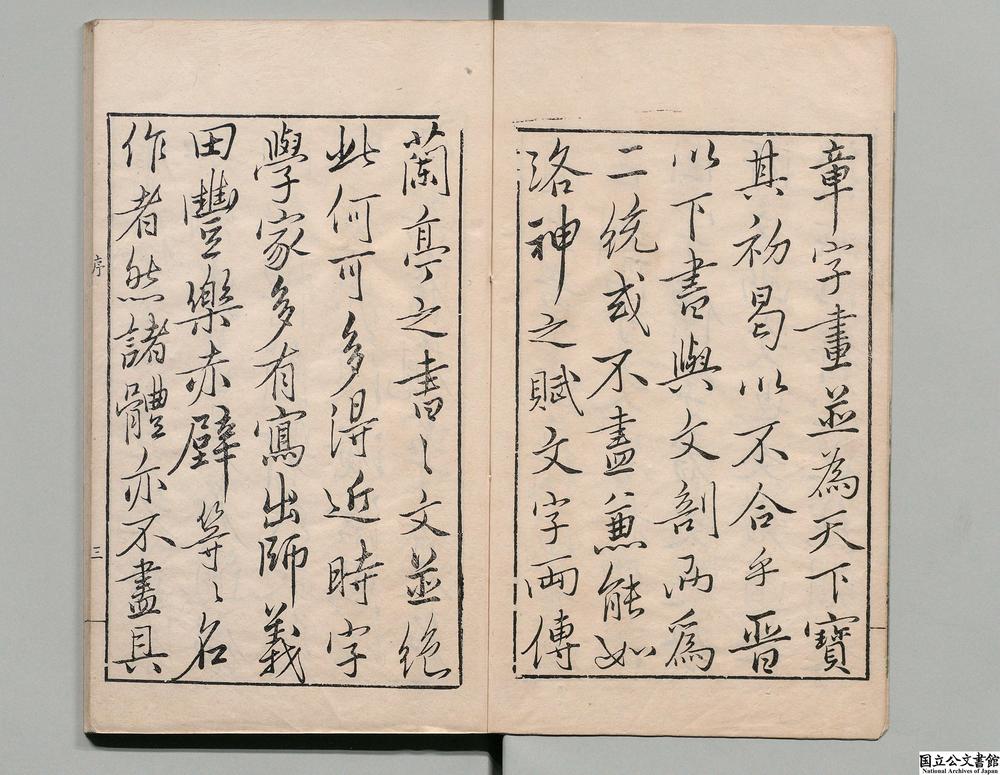 章字畫並為天下寶
其初曷以不合乎晉
以下書與文剖而為
二統或不盡兼能如
洛神之賦文字兩傳
蘭亭之書之文並絕
此何可多得近時字
學家多有寫出師義
田豐樂赤壁等之名
作者然諸體亦不盡具
序
三
国立公文書館
National Archives of Japan